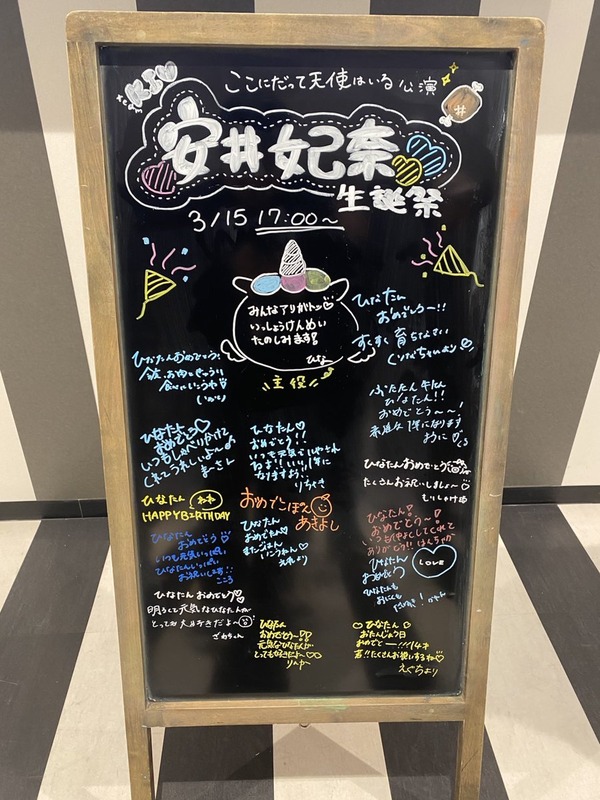 ここにだって天使はいる公演
安井妃奈
生誕祭
3/15 17:00～
みんなアリがトッ♡
いっしょうけんめい
たのしみます!
ひな
主役
ひなたん
おめでとうー!!
すくすく育ちなさい
ひなたんおめでとう!
食べにいこうね
ひなたん♡
おめでとう
いつもしゃべりかけて
くれてうれしいよ〜
まーさん
ひなたん♡
おめでとう!!
ひなたん!!
おめでとう〜〜!
素敵な1年になります
ように♡
ひなたんおめでとう
たくさんお祝いしましょ〜♡
ひなたん
HAPPY BIRTHDAY
おめでこぽん
あきよし
ひなたん
おめでたい
またごはん
いこうねん
ひなたん!
おめでとう〜!
いつも仲よくしてくれて
ありがとう!!
ひなたん
おめでとう♡
いつも元気いっぱい
ひなたんいっぱい
お祝いします!!
こころ
ひなたん
おめでとう
LOVE
ひなたん おめでとう♡
明るくて元気なひなたんが
とっても大好きだよ〜
ひなたん
おめでとう〜♡♡
元気なひなたんが
とても好きだよ〜♡♡
りんゆー
♡ひなたん♡
おたんじょう日
おめでと――!!!14才
君!!たくさんお祝いするね♡
えぐちより